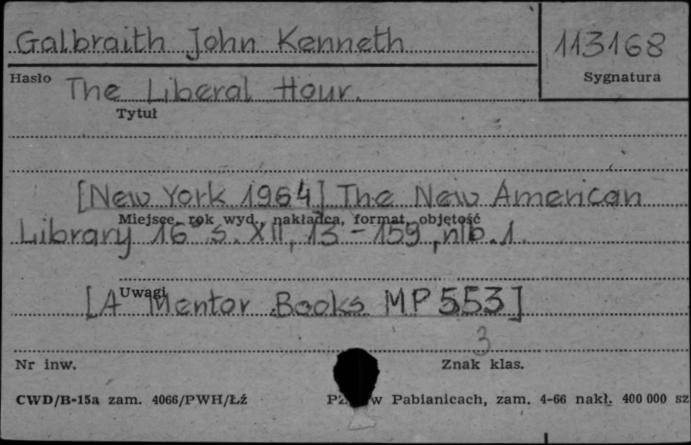 Galbraith John Kenneth
113168
Hasło
Sygnatura
The Liberal Hour.
Tytuł
[New York 1964] The New American
Miejsce, rok wyd., nakładca, format, objętość
Library 16° s. XII, 13-159, nlb. 1.
Uwagi
[A Mentor Books MP 553]
3
Nr inw.
Znak klas.
CWD/B-15a zam. 4066/PWH/Łź
w Pabianicach, zam. 4-66 nakł. 400 000 sz